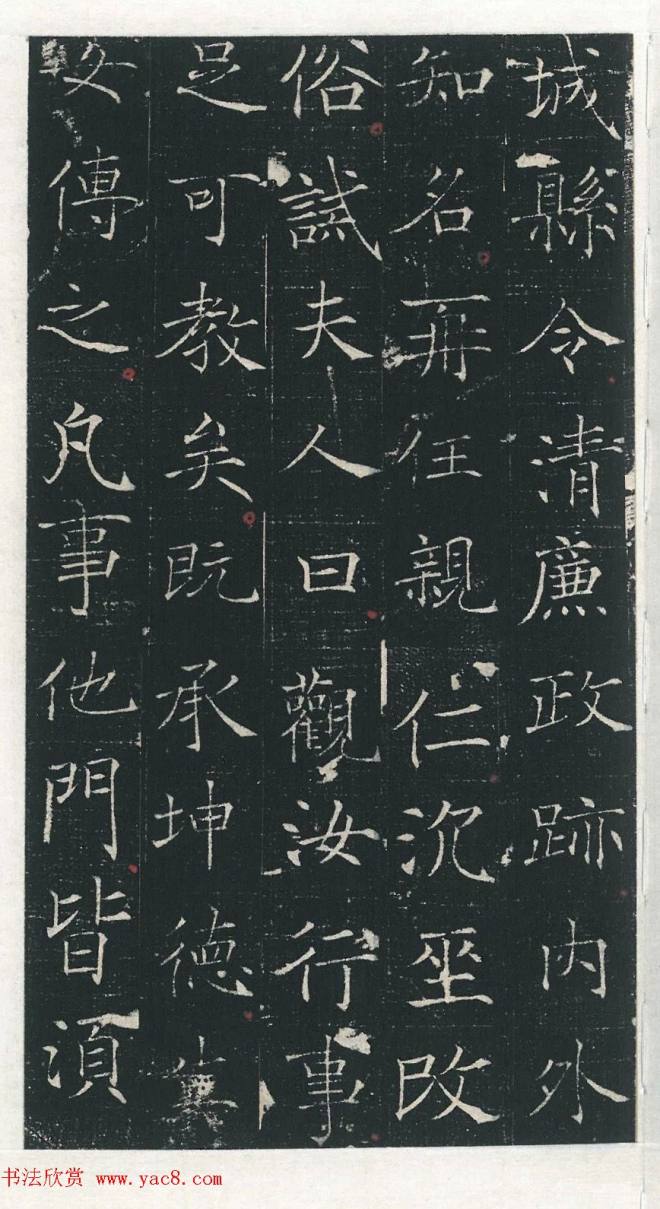 城縣令清廉政跡內外
知名再任親仁沉坐改
俗試夫人曰觀汝行事
足可教矣既承坤德
傳之凡事他門皆須
书法欣赏 www.yac8.com